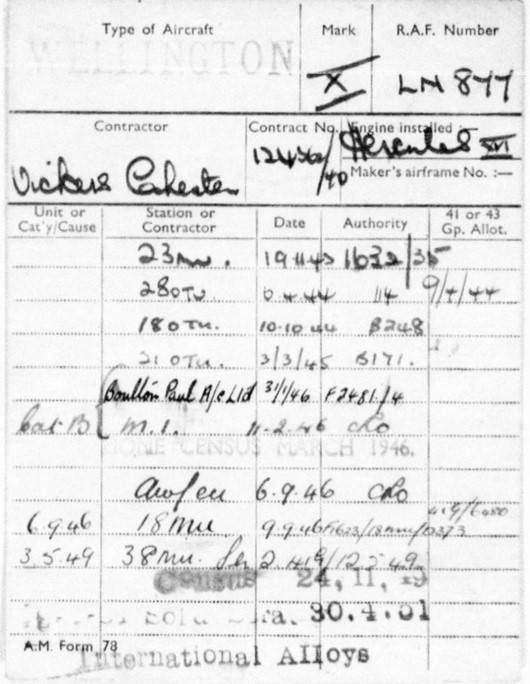 Type of Aircraft Mark R.A.F. Number
WELLINGTON X LN 877
Contractor Contract No. Engine installed :—
Vickers 124362/40 Hercules XVI
Maker's airframe No. :—
Unit or Cat'y/Cause Station or Contractor Date Authority 41 or 43 Gp. Allot.
23 MU. 19 11 43 1632/35
28 OTU 6.4.44 114 9/4/44
18 OTU. 10.10.44 B248
21 OTU. 3/3/45 B171.
Boulton Paul A/c Ltd 31/1/46 F2481/4
Cat B M.I. 11.2.46 CRO
HOME CENSUS MARCH 1946.
6.9.46 CRO
6.9.46 18 MU 9.9.46
3.5.49 38 MU.
Census 24, 11, 49
30.4.51
A.M. Form 78
International Alloys